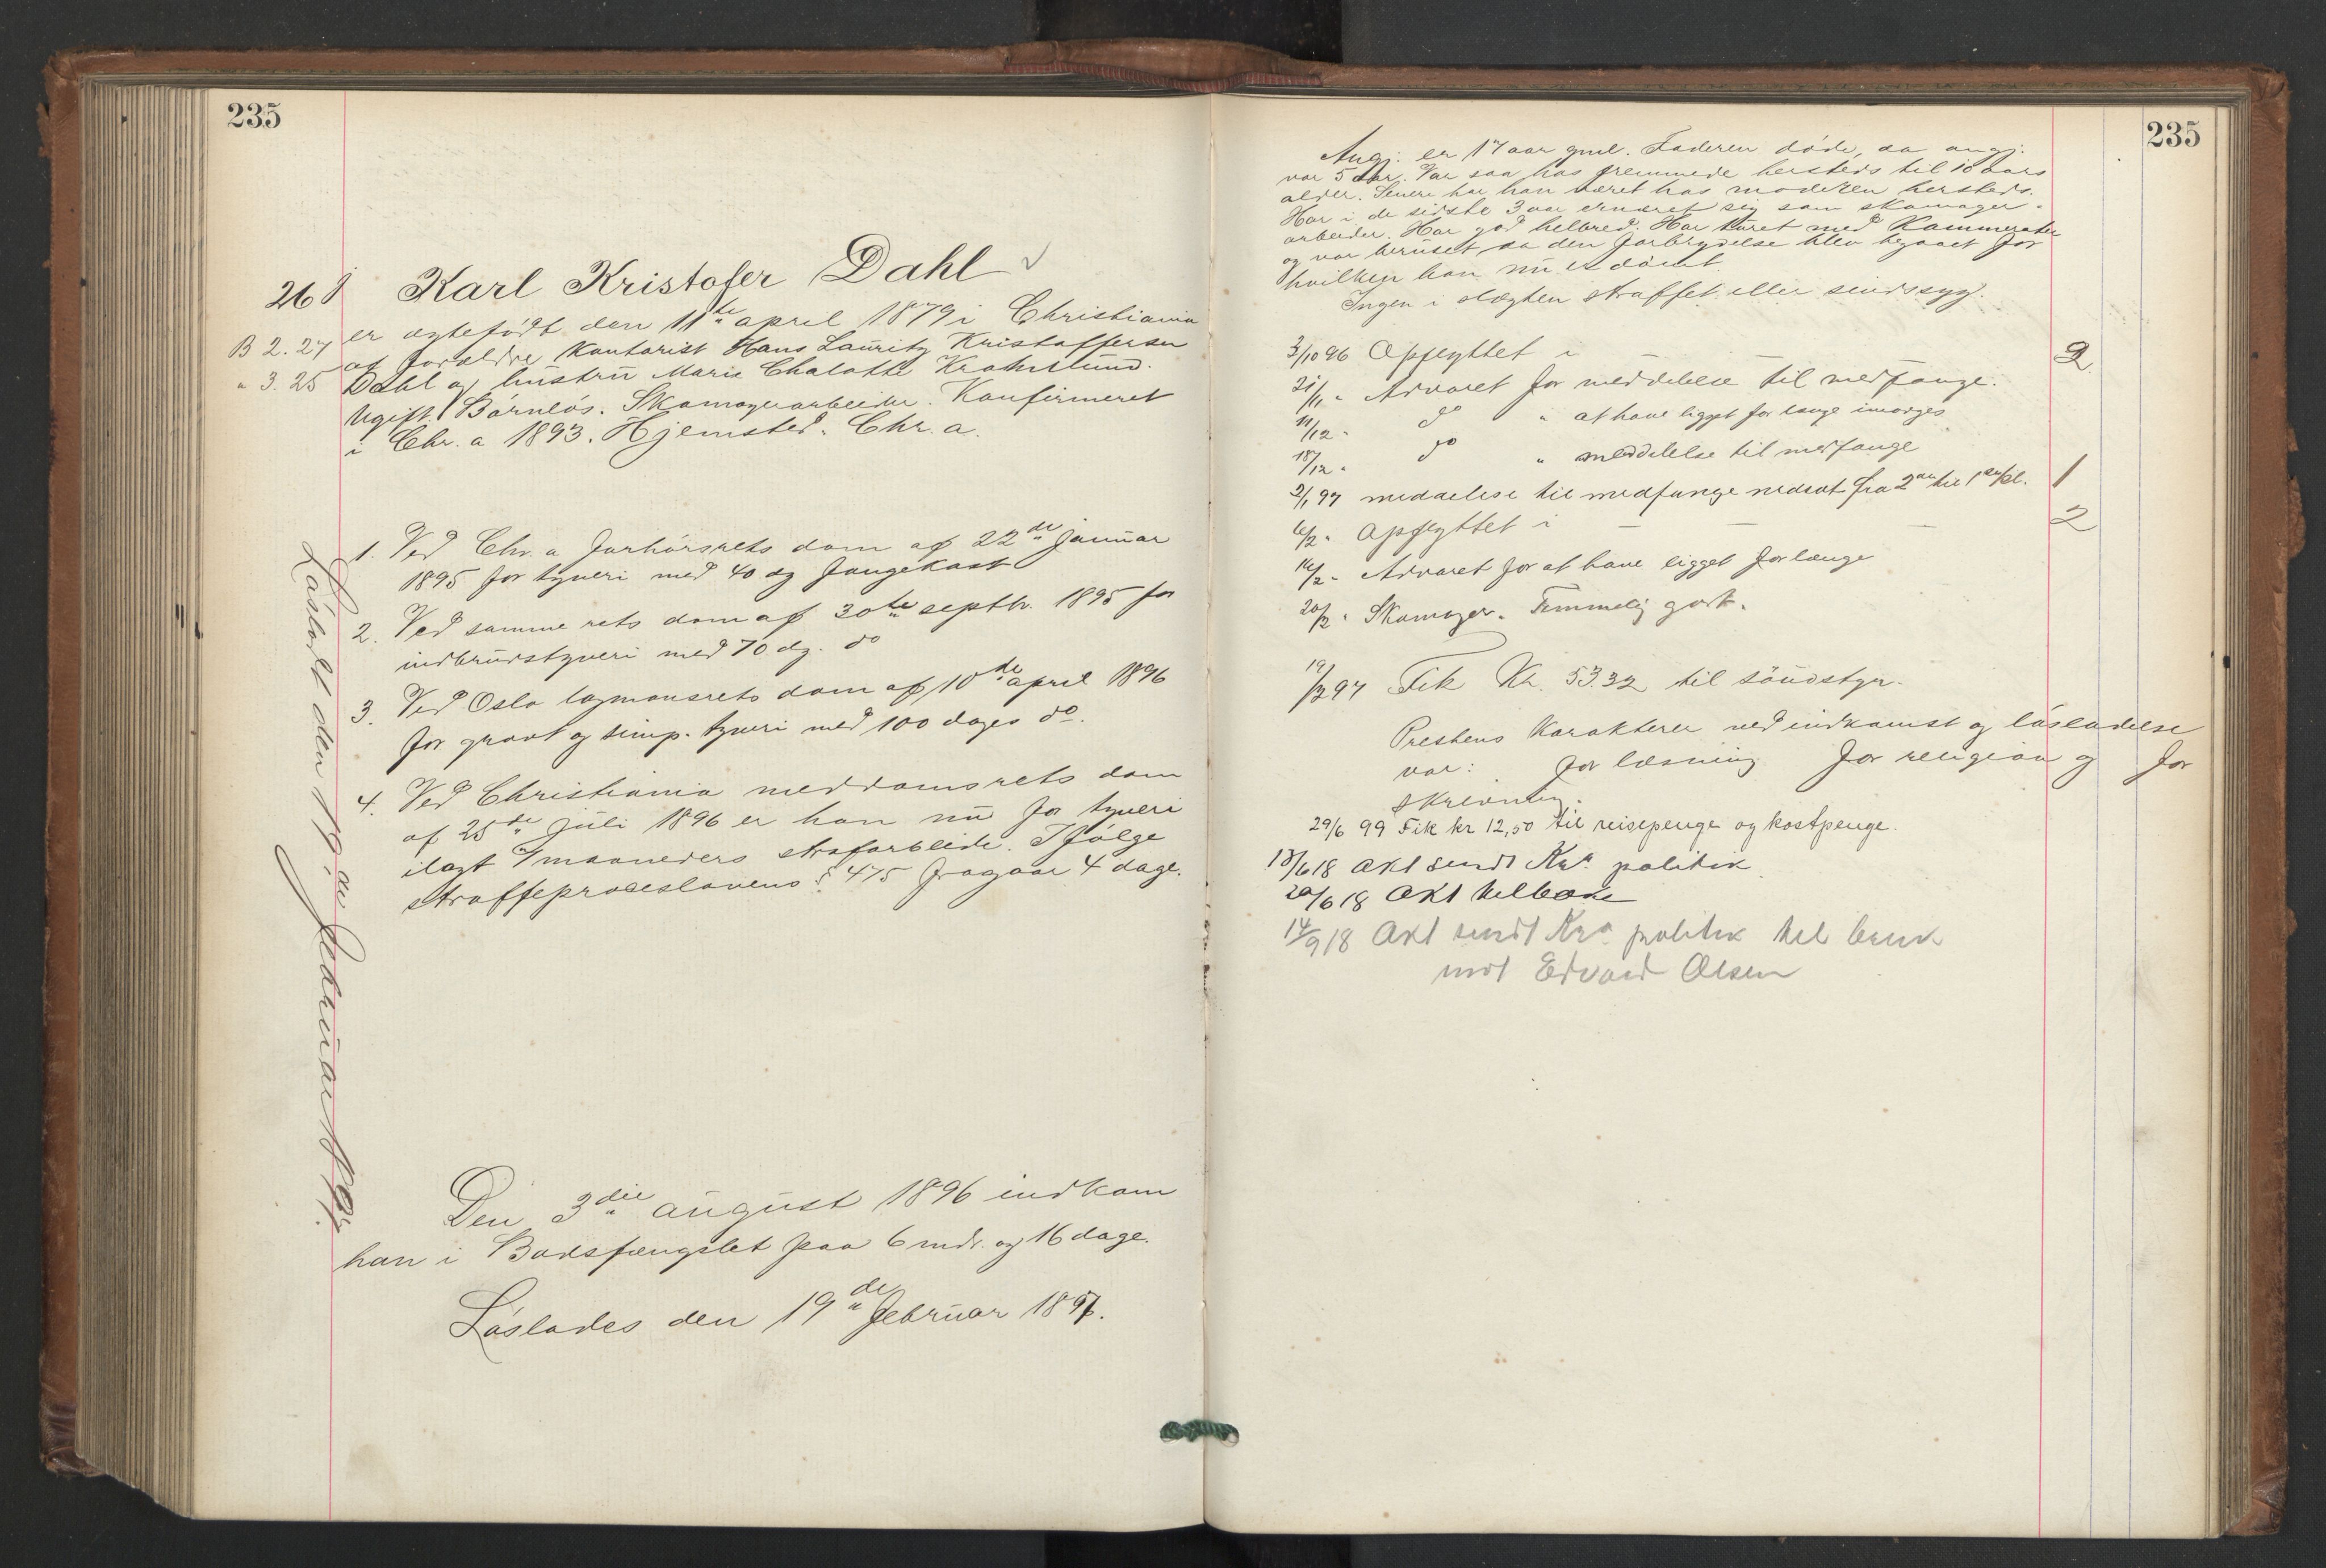 235
26
Karl Kristofer Dahl
B 2.27
" 3.25
er ægtefödt den 11te april 1879 i Christiania
af forældre Kontorist Hans Lauritz Kristoffersen
Dahl og hustru Marie Chalotte
Ugift. Börnlös. Skomagerarbeider. Konfirmeret
i Chr.a 1893. Hjemsted. Chr.a.
1. Ved Chr.a forhörsrets dom af 22de januar
1895 for tyveri med 40 dg fangekost
2. Ved samme rets dom af 30te septbr. 1895 for
indbrudstyveri med 70 dg. do
3. Ved Oslo lagmansrets dom af 10de april 1896
for grovt og simp. tyveri med 100 dages do.
4. Ved Christiania meddomsrets dom
af 25de juli 1896 er han nu for tyveri
ilagt 7 maaneders strafarbeide. Ifölge
straffeproceslovens § 475 fragaar 4 dage.
Löslodt den 19de februar 1897.
Den 3die august 1896 indkom
han i Bodsfængslet paa 6 mdr. og 16 dage.
Löslodes den 19de februar 1897.
235
Angj. er 17 aar gml. Faderen döde, da angj.
var 5 aar. Var saa hos fremmede hersteds til 10 aars
alder. Senere har han været hos moderen hersteds.
Har i de sidste 3 aar ernæret sig som skomager-
arbeider. Har god helbred. Har turet med Kammerater
og var beruset da den forbrydelse blev begaaet for
hvilken han nu er dömt.
Ingen i slægten straffet eller sindssyg.
3/10 96 Opflyttet i — — — 2
21/11 " Advaret for meddelelse til medfange.
11/12 " do " at have ligget for længe imorges
18/12 " do " meddelelse til medfange
2/1 97 meddelese til medfange nedsat fra 2den til 1ste kl. 1
6/2 " Opflyttet i — — — 2
16/2 " Advaret for at have ligget forlænge
20/2 " Skomager. Temmelig godt.
19/2 97 Fik Kr. 53.32 til
Prestens Karakterer ved indkomst og lösladelse
var: for læsning for religion og for
skrivning.
29/6 99 Fik kr 12,50 til reisepenge og kostpenge.
13/6 18 Akt sendt Kr.a politik
20/6 18 Akt tilbake
14/9 18 Akt sendt Kr.a politik til bruk
mot Edvard Olsen